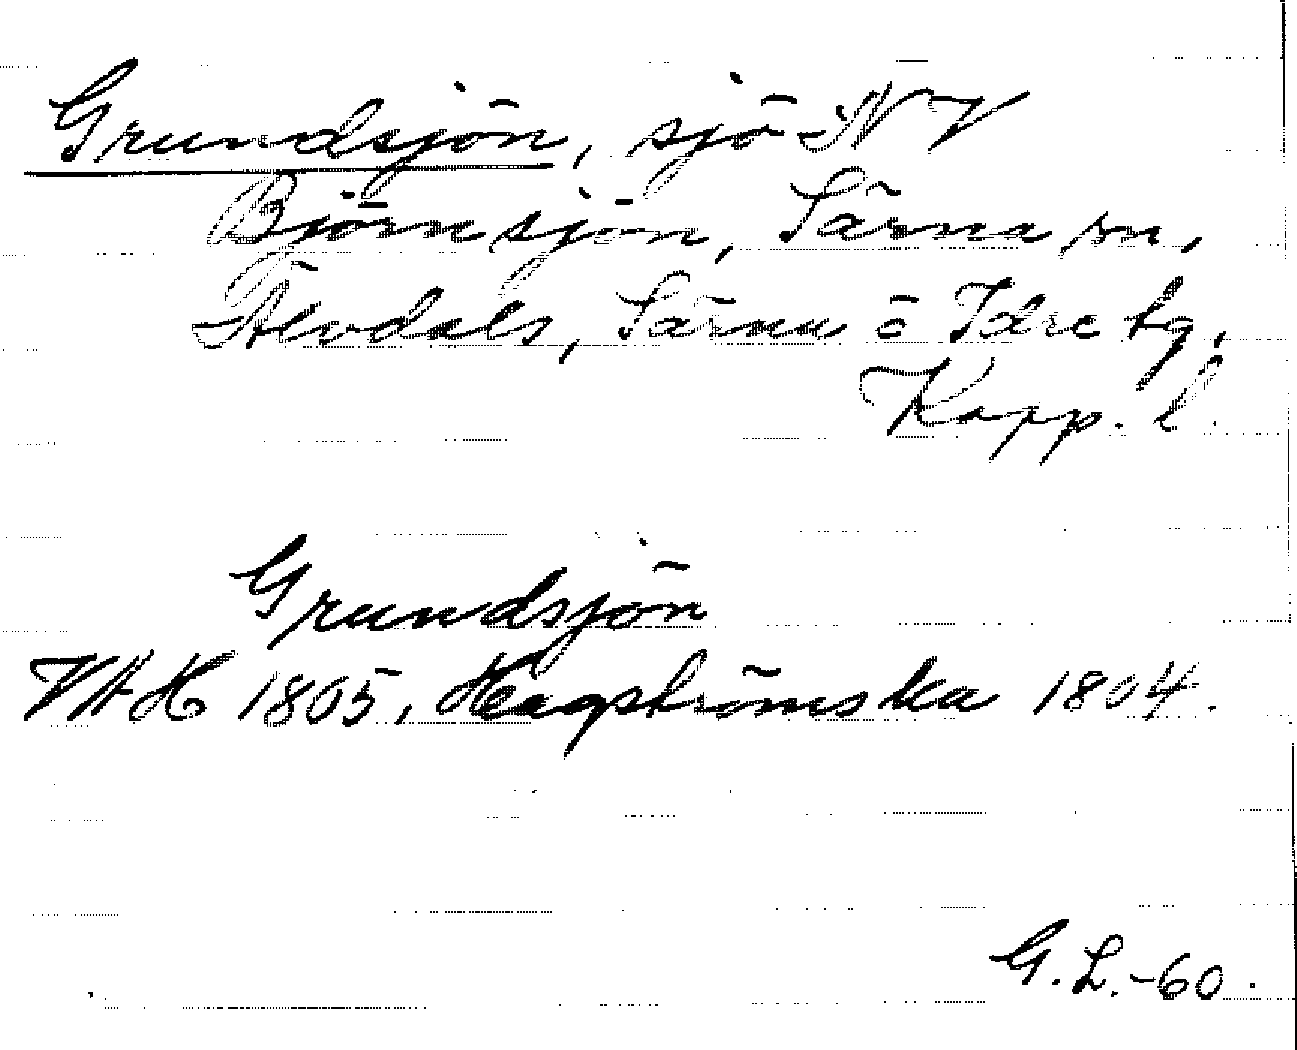 Grundsjön, sjö NV
Björnsjön, Särna sn,
Älvdals, Särna o Idre tg,
Kopp. l.
Grundsjön
VAH 1805, Hagströmska 1804.
G.L.-60.